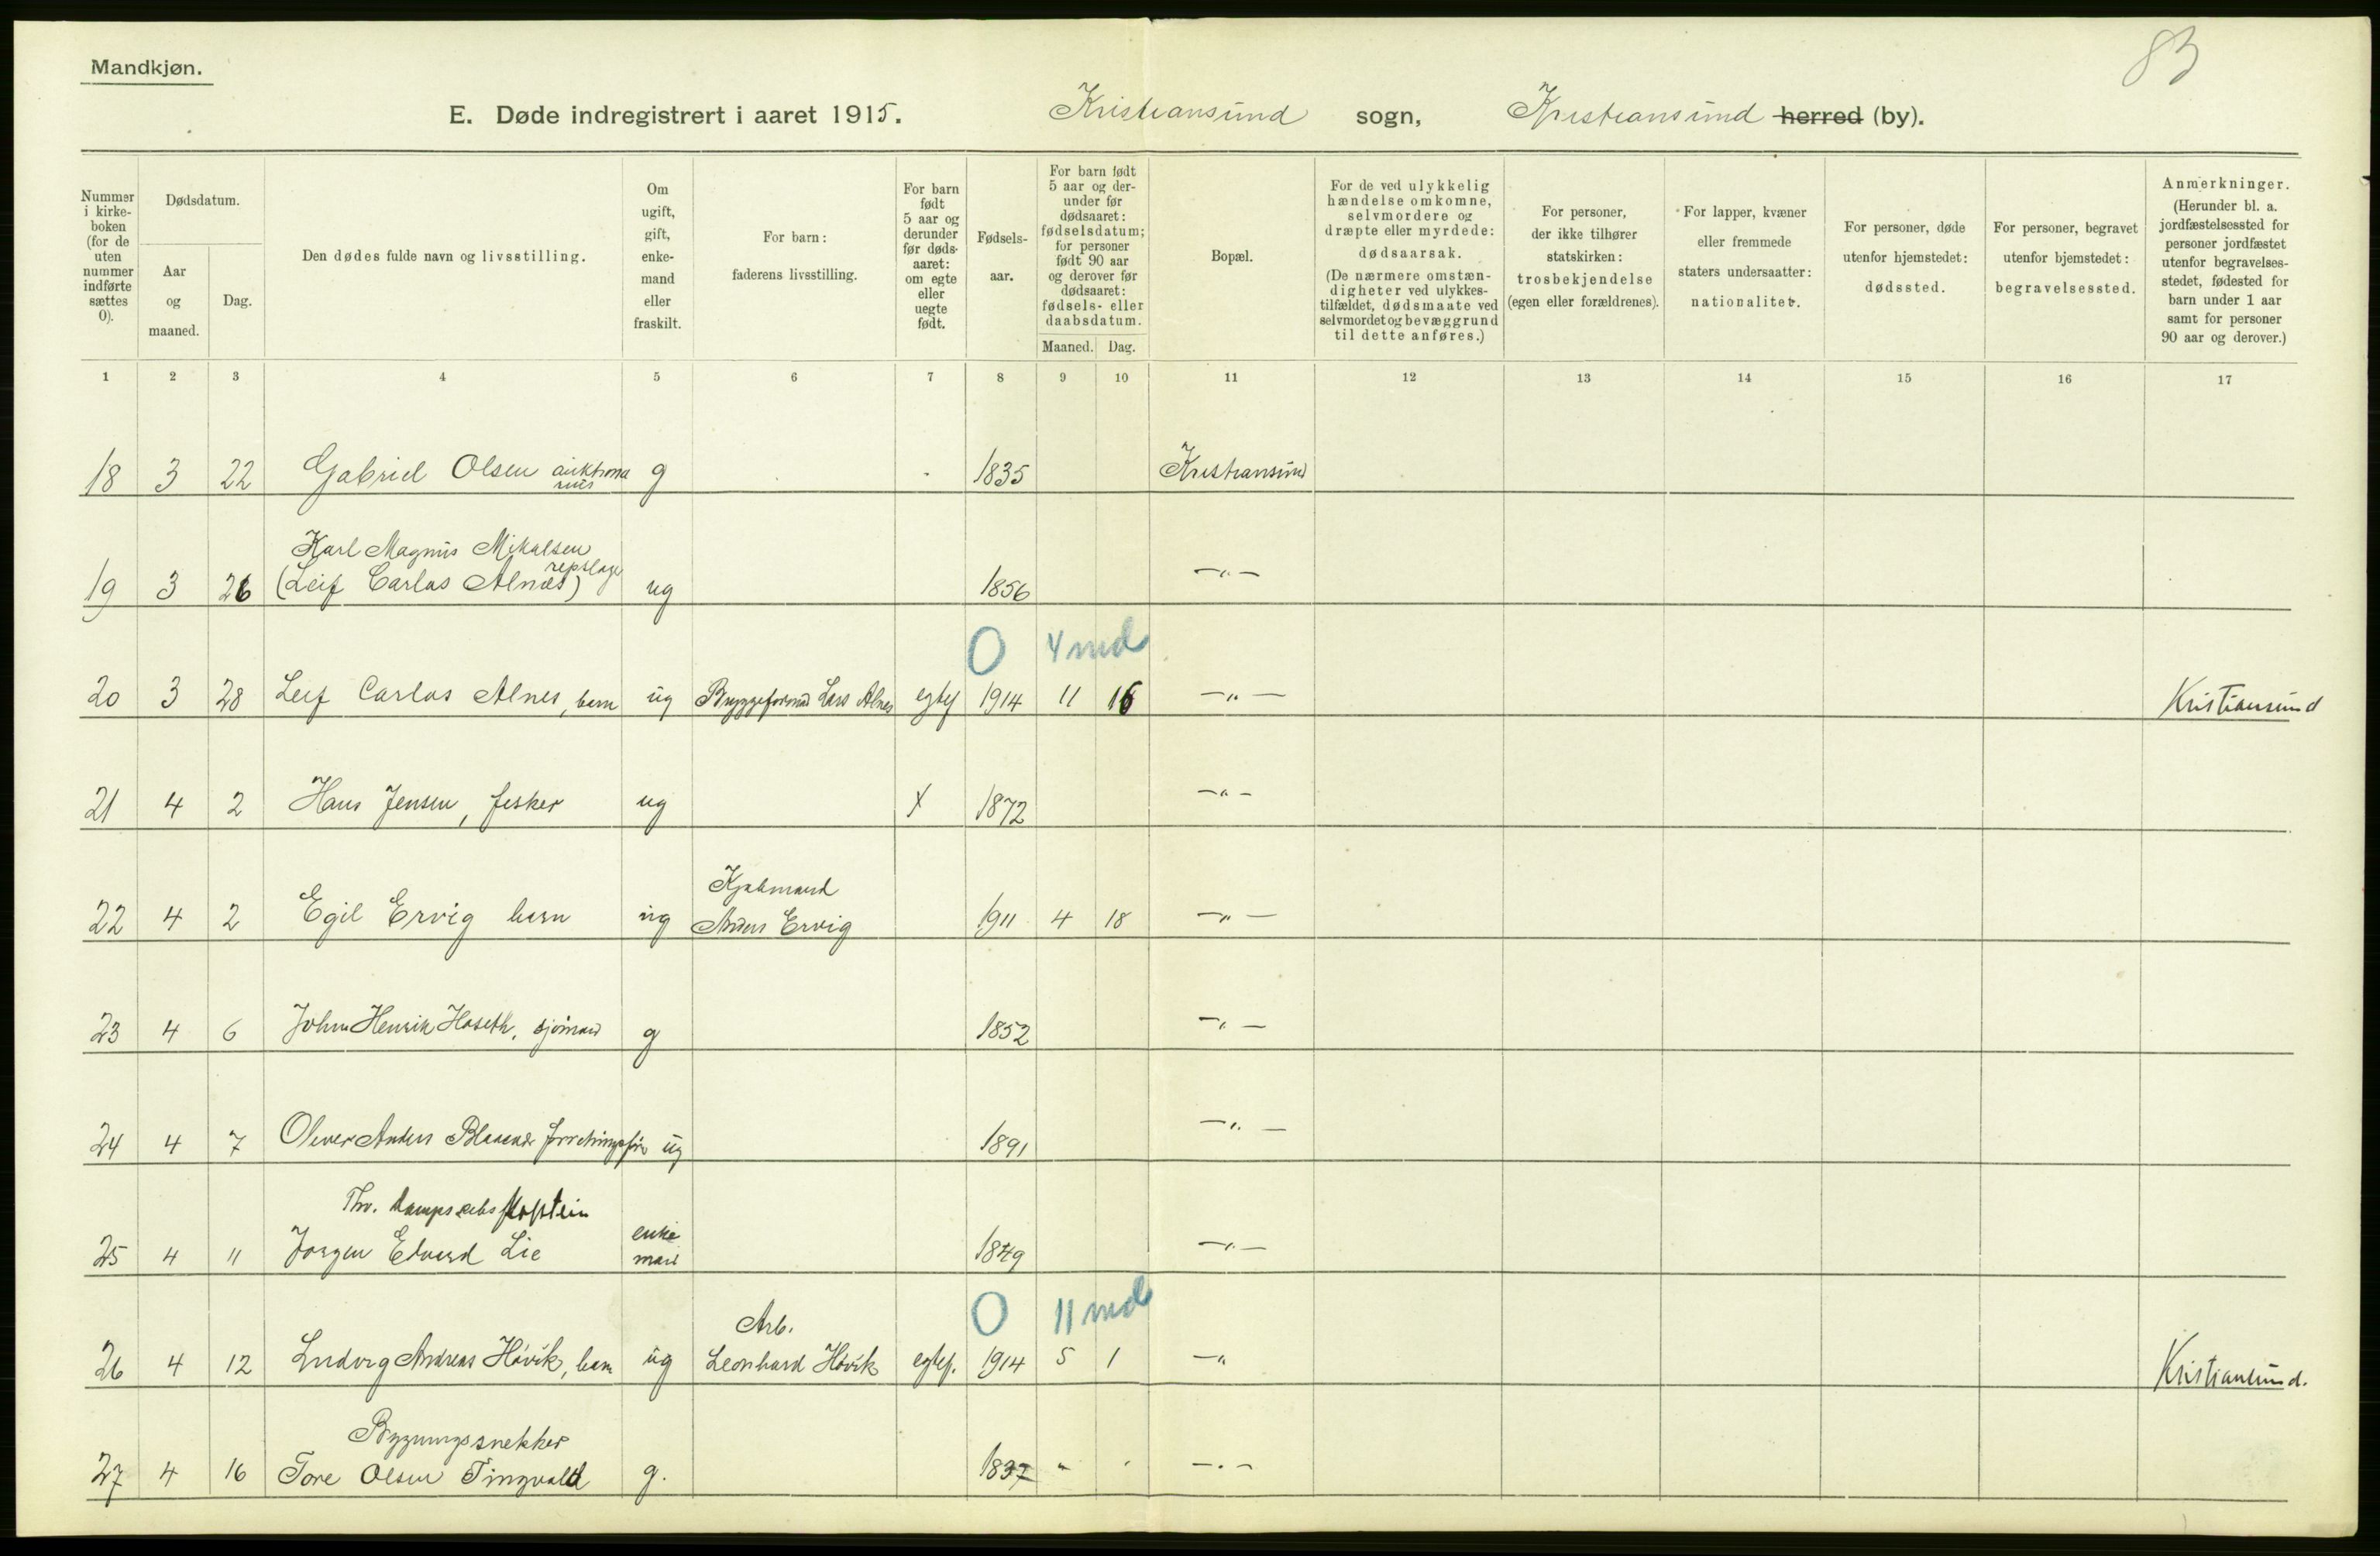 83
Mandkjøn.
E. Døde indregistrert i aaret 1915. Kristiansund sogn, Kristiansund herred (by).
Nummer i kirke-boken (for de uten nummer indførte sættes 0).
Dødsdatum.
Aar og maaned.
Dag.
Den dødes fulde navn og livsstilling.
Om ugift, gift, enke-mand eller fraskilt.
For barn: faderens livsstilling.
For barn født 5 aar og derunder før døds-aaret: om egte eller uegte født.
Fødsels-aar.
For barn født 5 aar og der-under før dødsaaret: fødselsdatum; for personer født 90 aar og derover før dødsaaret: fødsels- eller daabsdatum.
Maaned. Dag.
Bopæl.
For de ved ulykkelig hændelse omkomne, selvmordere og dræpte eller myrdede: dødsaarsak. (De nærmere omstæn-digheter ved ulykkes-tilfældet, dødsmaate ved selvmordet og bevæggrund til dette anføres.)
For personer, der ikke tilhører statskirken: trosbekjendelse (egen eller forældrenes).
For lapper, kvæner eller fremmede staters undersaatter: nationalitet.
For personer, døde utenfor hjemstedet: dødssted.
For personer, begravet utenfor hjemstedet: begravelsessted.
Anmerkninger. (Herunder bl. a. jordfæstelsessted for personer jordfæstet utenfor begravelses-stedet, fødested for barn under 1 aar samt for personer 90 aar og derover.)
1 2 3 4 5 6 7 8 9 10 11 12 13 14 15 16 17
18 3 22 Gabriel Olsen auktiona g 1835 Kristiansund
rius
Karl Magnus Mikalsen
repslager
19 3 26 (Leif Carlos Alnæs) ug 1856 —"—
0 4 md
20 3 28 Leif Carlos Alnes, barn ug Bryggeformd Lars Alnes egtef 1914 11 16 —"— Kristiansund
21 4 2 Hans Jensen, fisker ug X 1872 —"—
Kjøbmand
22 4 2 Egil Ervig barn ug Anders Ervig 1911 4 18 —"—
23 4 6 John Henrik Hoseth, sjømand g 1852 —"—
24 4 7 Anders ug 1891 —"—
Thv. Dampskibs
enke
25 4 11 Jørgen Edvard Lie mand 1849 —"—
0 11 md
Arb.
26 4 12 Ludvig Andreas Høvik, barn ug Leonhard Høvik egtef. 1914 5 1 —" Kristiansund.
Bygningssnekker
27 4 16 Tore Olsen Tingvold g. 1837 " " —"—